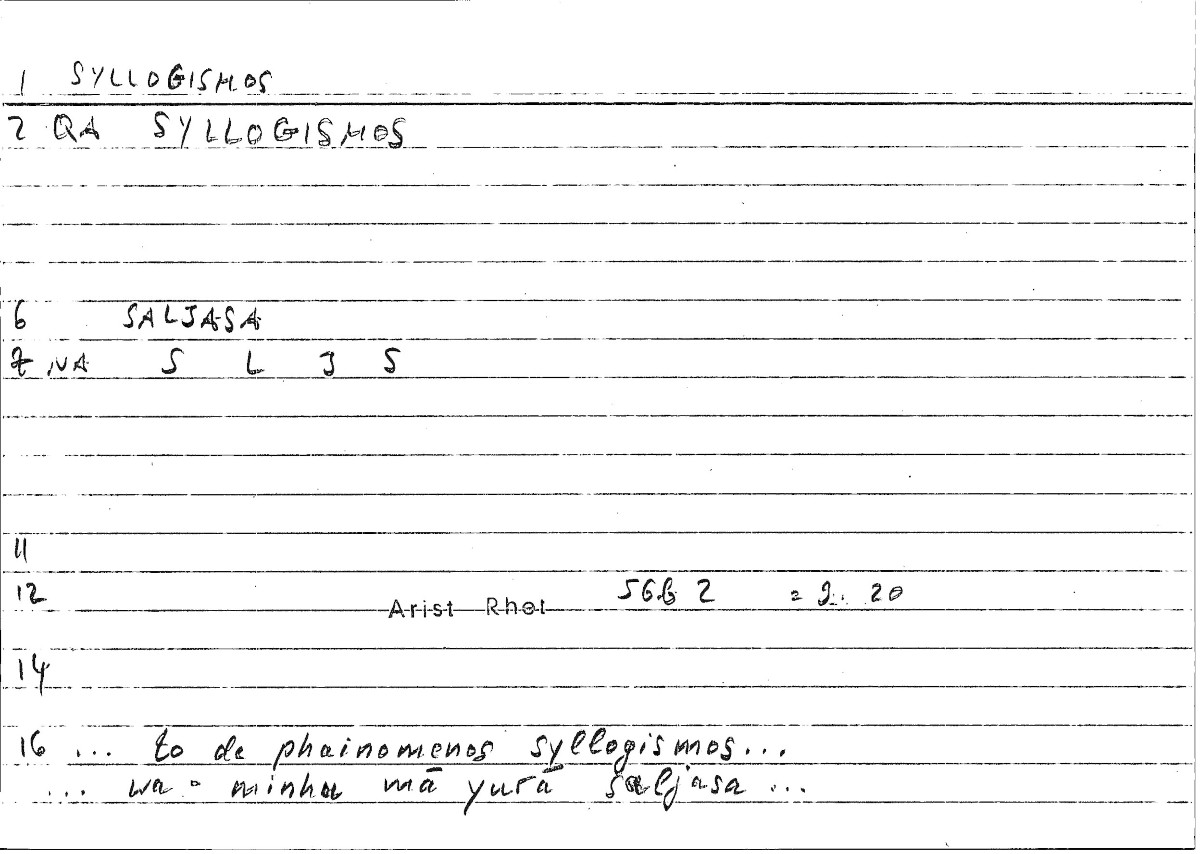 1 SYLLOGISMOS
2 QA SYLLOGISMOS
6 SALJASA
7 NA S L J S
11
12 Arist Rhet 56b 2 = 9. 20
14
16 ... to de phainomenos syllogismos...
... wa - minhu mā yurā saljasa ...